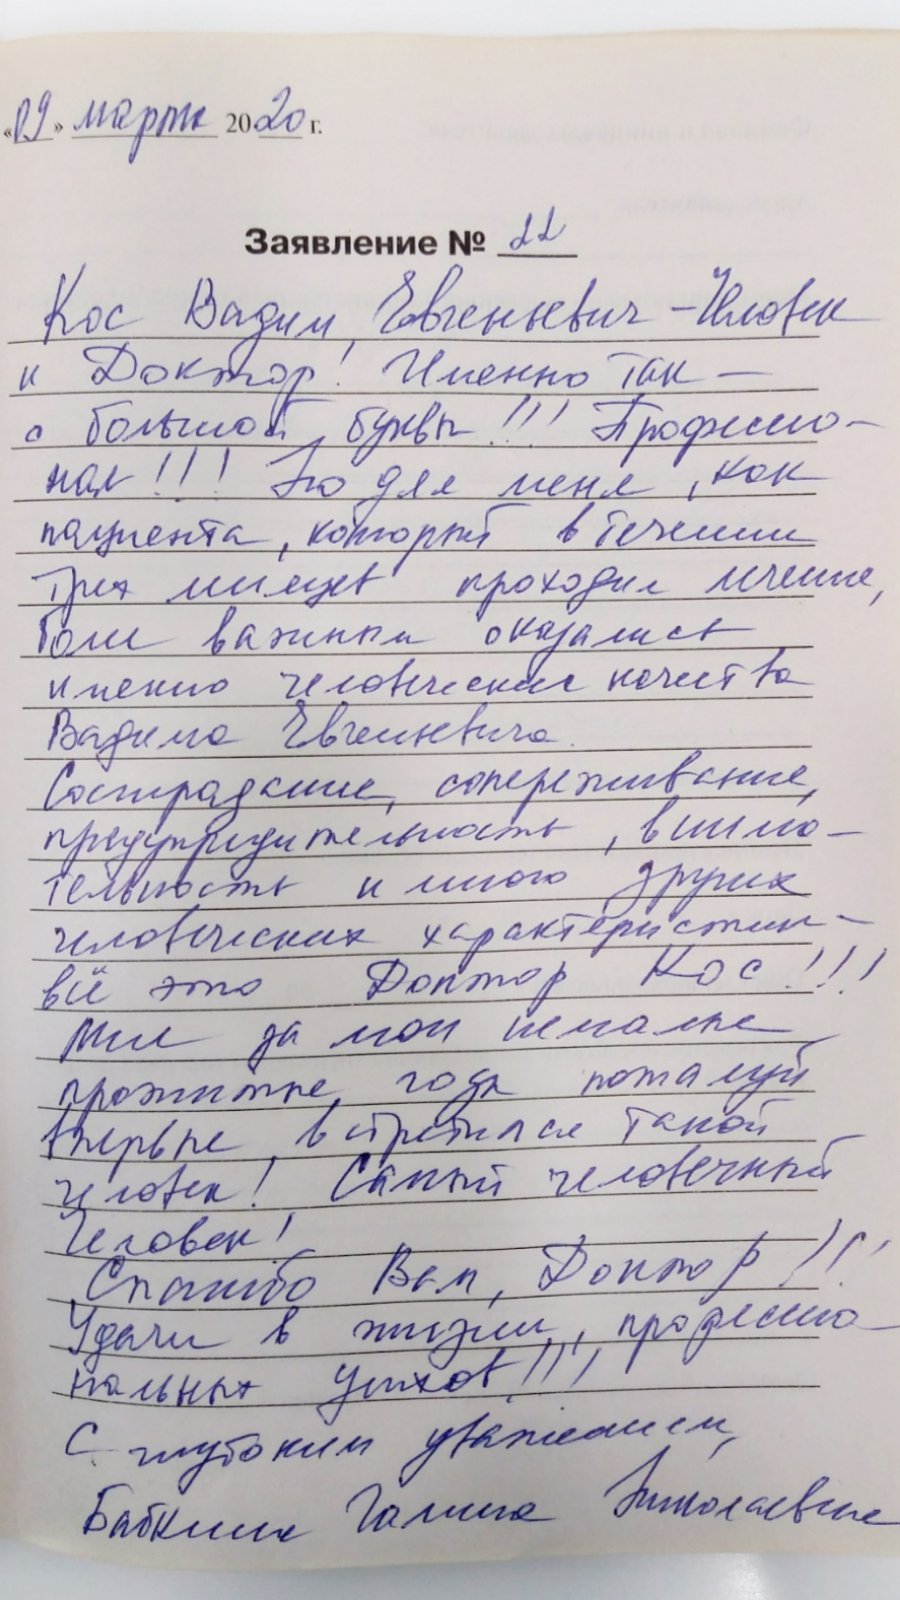 «09» марта 2020 г.
Заявление № 22
Кос Вадим Евгеньевич – Человек
и Доктор! Именно так –
с большой буквы!!! Профессио-
нал!!! Но для меня, как
пациента, который в течении
трёх месяцев проходил лечение,
более важным оказались
именно человеческие качества
Вадима Евгеньевича.
Сострадание, сопереживание,
предупредительность, внима-
тельность и много других
человеческих характеристик –
всё это Доктор Кос!!!
Мне за мои немалые
прожитые года пожалуй
впервые встретился такой
человек! Самый человечный
Человек!
Спасибо Вам, Доктор!!!
Удачи в жизни, профессио
нальных успехов!!!
С глубоким уважением,
Галина